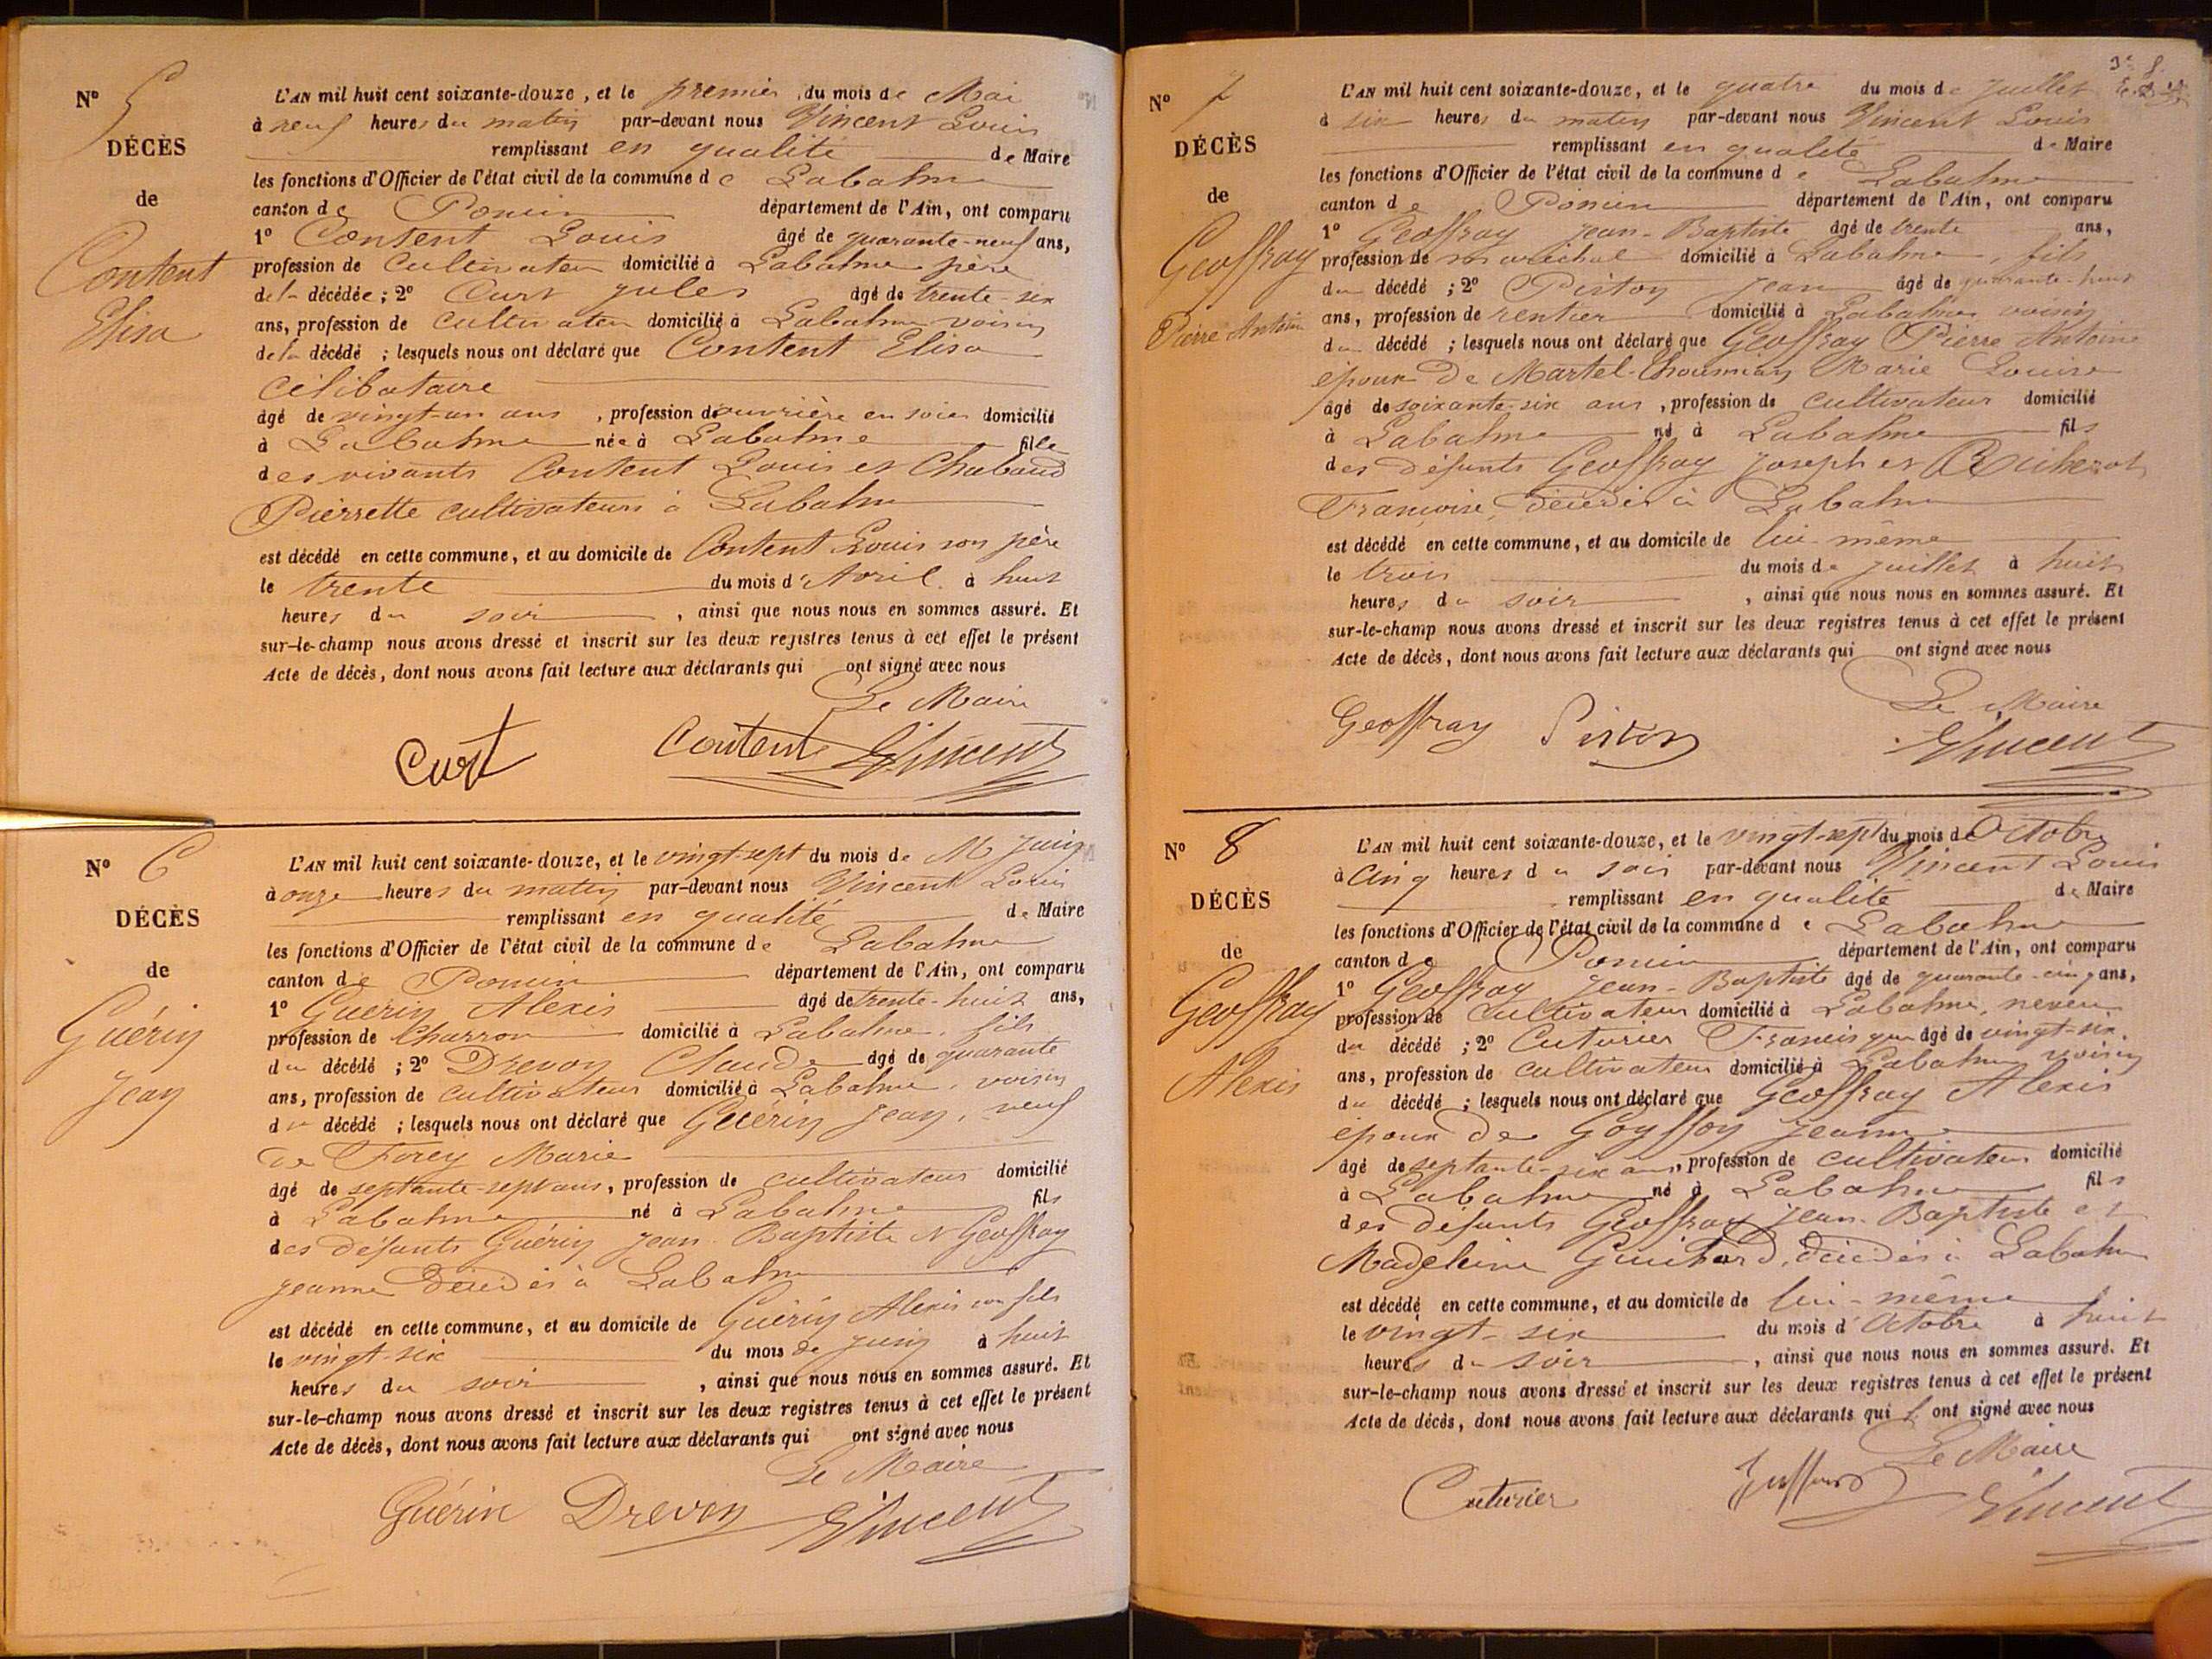 N° 5
DÉCÈS
de
Content
Elisa
L'AN mil huit cent soixante-douze, et le premier du mois de Mai
à neuf heures du matin par-devant nous Vincent Louis
remplissant en qualité de Maire
les fonctions d'Officier de l'état civil de la commune de Labalme
canton de Poncin département de l'Ain, ont comparu
1° Content Louis âgé de quarante-neuf ans,
profession de cultivateur domicilié à Labalme père
de la décédée ; 2° Curt Jules âgé de trente-six
ans, profession de cultivateur domicilié à Labalme voisin
de la décédé ; lesquels nous ont déclaré que Content Elisa
célibataire
âgé de vingt-un ans, profession d'ouvrière en soie domicilié
à Labalme née à Labalme fille
des vivants Content Louis et Chabaud
Pierrette cultivateurs à Labalme
est décédé en cette commune, et au domicile de Content Louis son père
le trente du mois d'Avril à huit
heures du soir, ainsi que nous nous en sommes assuré. Et
sur-le-champ nous avons dressé et inscrit sur les deux registres tenus à cet effet le présent
Acte de décès, dont nous avons fait lecture aux déclarants qui ont signé avec nous
Le Maire
Curt Content Vincent
N° 6
DÉCÈS
de
Guérin
Jean
L'AN mil huit cent soixante-douze, et le vingt-sept du mois de M Juin
à onze heures du matin par-devant nous Vincent Louis
remplissant en qualité de Maire
les fonctions d'Officier de l'état civil de la commune de Labalme
canton de Poncin département de l'Ain, ont comparu
1° Guérin Alexis âgé de trente-huit ans,
profession de Charron domicilié à Labalme, fils
du décédé ; 2° Drevon Claude âgé de quarante
ans, profession de cultivateur domicilié à Labalme, voisin
du décédé ; lesquels nous ont déclaré que Guérin Jean, veuf
de Forey Marie
âgé de septante-sept ans, profession de cultivateur domicilié
à Labalme né à Labalme fils
des défunts Guérin Jean Baptiste et Geoffray
Jeanne décédés à Labalme
est décédé en cette commune, et au domicile de Guérin Alexis son fils
le vingt-six du mois de juin à huit
heures du soir, ainsi que nous nous en sommes assuré. Et
sur-le-champ nous avons dressé et inscrit sur les deux registres tenus à cet effet le présent
Acte de décès, dont nous avons fait lecture aux déclarants qui ont signé avec nous
Le Maire
Guérin Drevon Vincent
N° 7
DÉCÈS
de
Geoffray
Pierre Antoine
L'AN mil huit cent soixante-douze, et le quatre du mois de Juillet
à six heures du matin par-devant nous Vincent Louis
remplissant en qualité de Maire
les fonctions d'Officier de l'état civil de la commune de Labalme
canton de Poncin département de l'Ain, ont comparu
1° Geoffray Jean-Baptiste âgé de trente ans,
profession de maréchal domicilié à Labalme, fils
du décédé ; 2° Piston Jean âgé de quarante-huit
ans, profession de rentier domicilié à Labalme voisin
du décédé ; lesquels nous ont déclaré que Geoffray Pierre Antoine
époux de Martel- Marie Louise
âgé de soixante-six ans, profession de cultivateur domicilié
à Labalme né à Labalme fils
des défunts Geoffray Joseph et
Françoise, décédés à Labalme
est décédé en cette commune, et au domicile de lui-même
le trois du mois de juillet à huit
heures du soir, ainsi que nous nous en sommes assuré. Et
sur-le-champ nous avons dressé et inscrit sur les deux registres tenus à cet effet le présent
Acte de décès, dont nous avons fait lecture aux déclarants qui ont signé avec nous
Le Maire
Geoffray Piston Vincent
N° 8
DÉCÈS
de
Geoffray
Alexis
L'AN mil huit cent soixante-douze, et le vingt-sept du mois d'Octobre
à cinq heures du soir par-devant nous Vincent Louis
remplissant en qualité de Maire
les fonctions d'Officier de l'état civil de la commune de Labalme
canton de Poncin département de l'Ain, ont comparu
1° Geoffray Jean-Baptiste âgé de quarante-cinq ans,
profession de cultivateur domicilié à Labalme, neveu
du décédé ; 2° Cuturier Francisque âgé de vingt-six
ans, profession de cultivateur domicilié à Labalme voisin
du décédé ; lesquels nous ont déclaré que Geoffray Alexis
époux de Goyffon Jeanne
âgé de septante-six ans, profession de cultivateur domicilié
à Labalme né à Labalme fils
des défunts Geoffray Jean-Baptiste et
Madeleine décédés à Labalme
est décédé en cette commune, et au domicile de lui-même
le vingt-six du mois d'Octobre à huit
heures du soir, ainsi que nous nous en sommes assuré. Et
sur-le-champ nous avons dressé et inscrit sur les deux registres tenus à cet effet le présent
Acte de décès, dont nous avons fait lecture aux déclarants qui ont signé avec nous
Le Maire
Cuturier Vincent